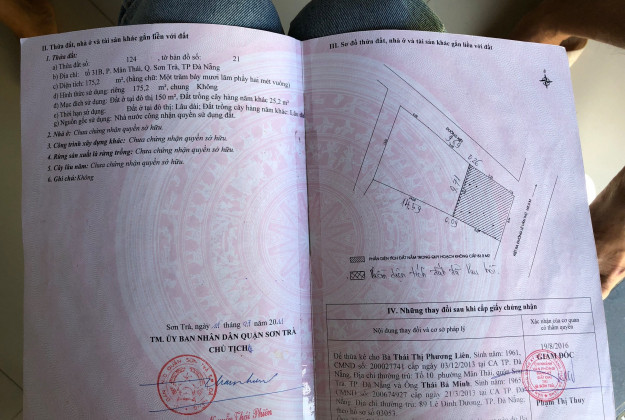 II. Thửa đất, nhà ở và tài sản khác gắn liền với đất
1. Thửa đất:
a) Thửa đất số: 124 , tờ bản đồ số: 21
b) Địa chỉ: tổ 31B, P. Mân Thái, Q. Sơn Trà, TP Đà Nẵng
c) Diện tích: 175,2 m², (bằng chữ: Một trăm bảy mươi lăm phẩy hai mét vuông)
d) Hình thức sử dụng: riêng 175,2 m², chung Không
đ) Mục đích sử dụng: Đất ở tại đô thị 150 m², Đất trồng cây hàng năm khác 25,2 m²
e) Thời hạn sử dụng: Đất ở tại đô thị: Lâu dài; Đất trồng cây hàng năm khác: Lâu
g) Nguồn gốc sử dụng: Nhà nước công nhận quyền sử dụng đất.
2. Nhà ở: Chưa chứng nhận quyền sở hữu
3. Công trình xây dựng khác: Chưa chứng nhận quyền sở hữu.
4. Rừng sản xuất là rừng trồng: Chưa chứng nhận quyền sở hữu.
5. Cây lâu năm: Chưa chứng nhận quyền sở hữu.
6. Ghi chú: Không
Sơn Trà, ngày tháng năm
TM. ỦY BAN NHÂN DÂN QUẬN SƠN TRÀ
CHỦ TỊCH
III. Sơ đồ thửa đất, nhà ở và tài sản khác gắn liền với đất
PHẦN DIỆN TÍCH ĐẤT NẰM TRONG QUY HOẠCH KHÔNG CẤP
Phần diện tích đất đã thu hồi
IV. Những thay đổi sau khi cấp giấy chứng nhận
Nội dung thay đổi và cơ sở pháp lý
Xác nhận của cơ quan
có thẩm quyền
Để thừa kế cho Bà Thái Thị Phương Liên, Sinh năm: 1961,
CMND số: 200027741 cấp ngày 03/12/2013 tại CA TP. Đà
Nẵng, Địa chỉ thường trú: Tổ 10, phường Mân Thái, quận Sơn
Trà, TP. Đà Nẵng và Ông Thái Bá Minh, Sinh năm: 1965,
CMND số: 200674927 cấp ngày 21/3/2013 tại CA TP. Đà
Nẵng, Địa chỉ thường trú: 89 Lê Đình Dương, TP. Đà Nẵng;
theo hồ sơ số 02051.
19/8/2016
GIÁM ĐỐC
Phạm Thị Thuy